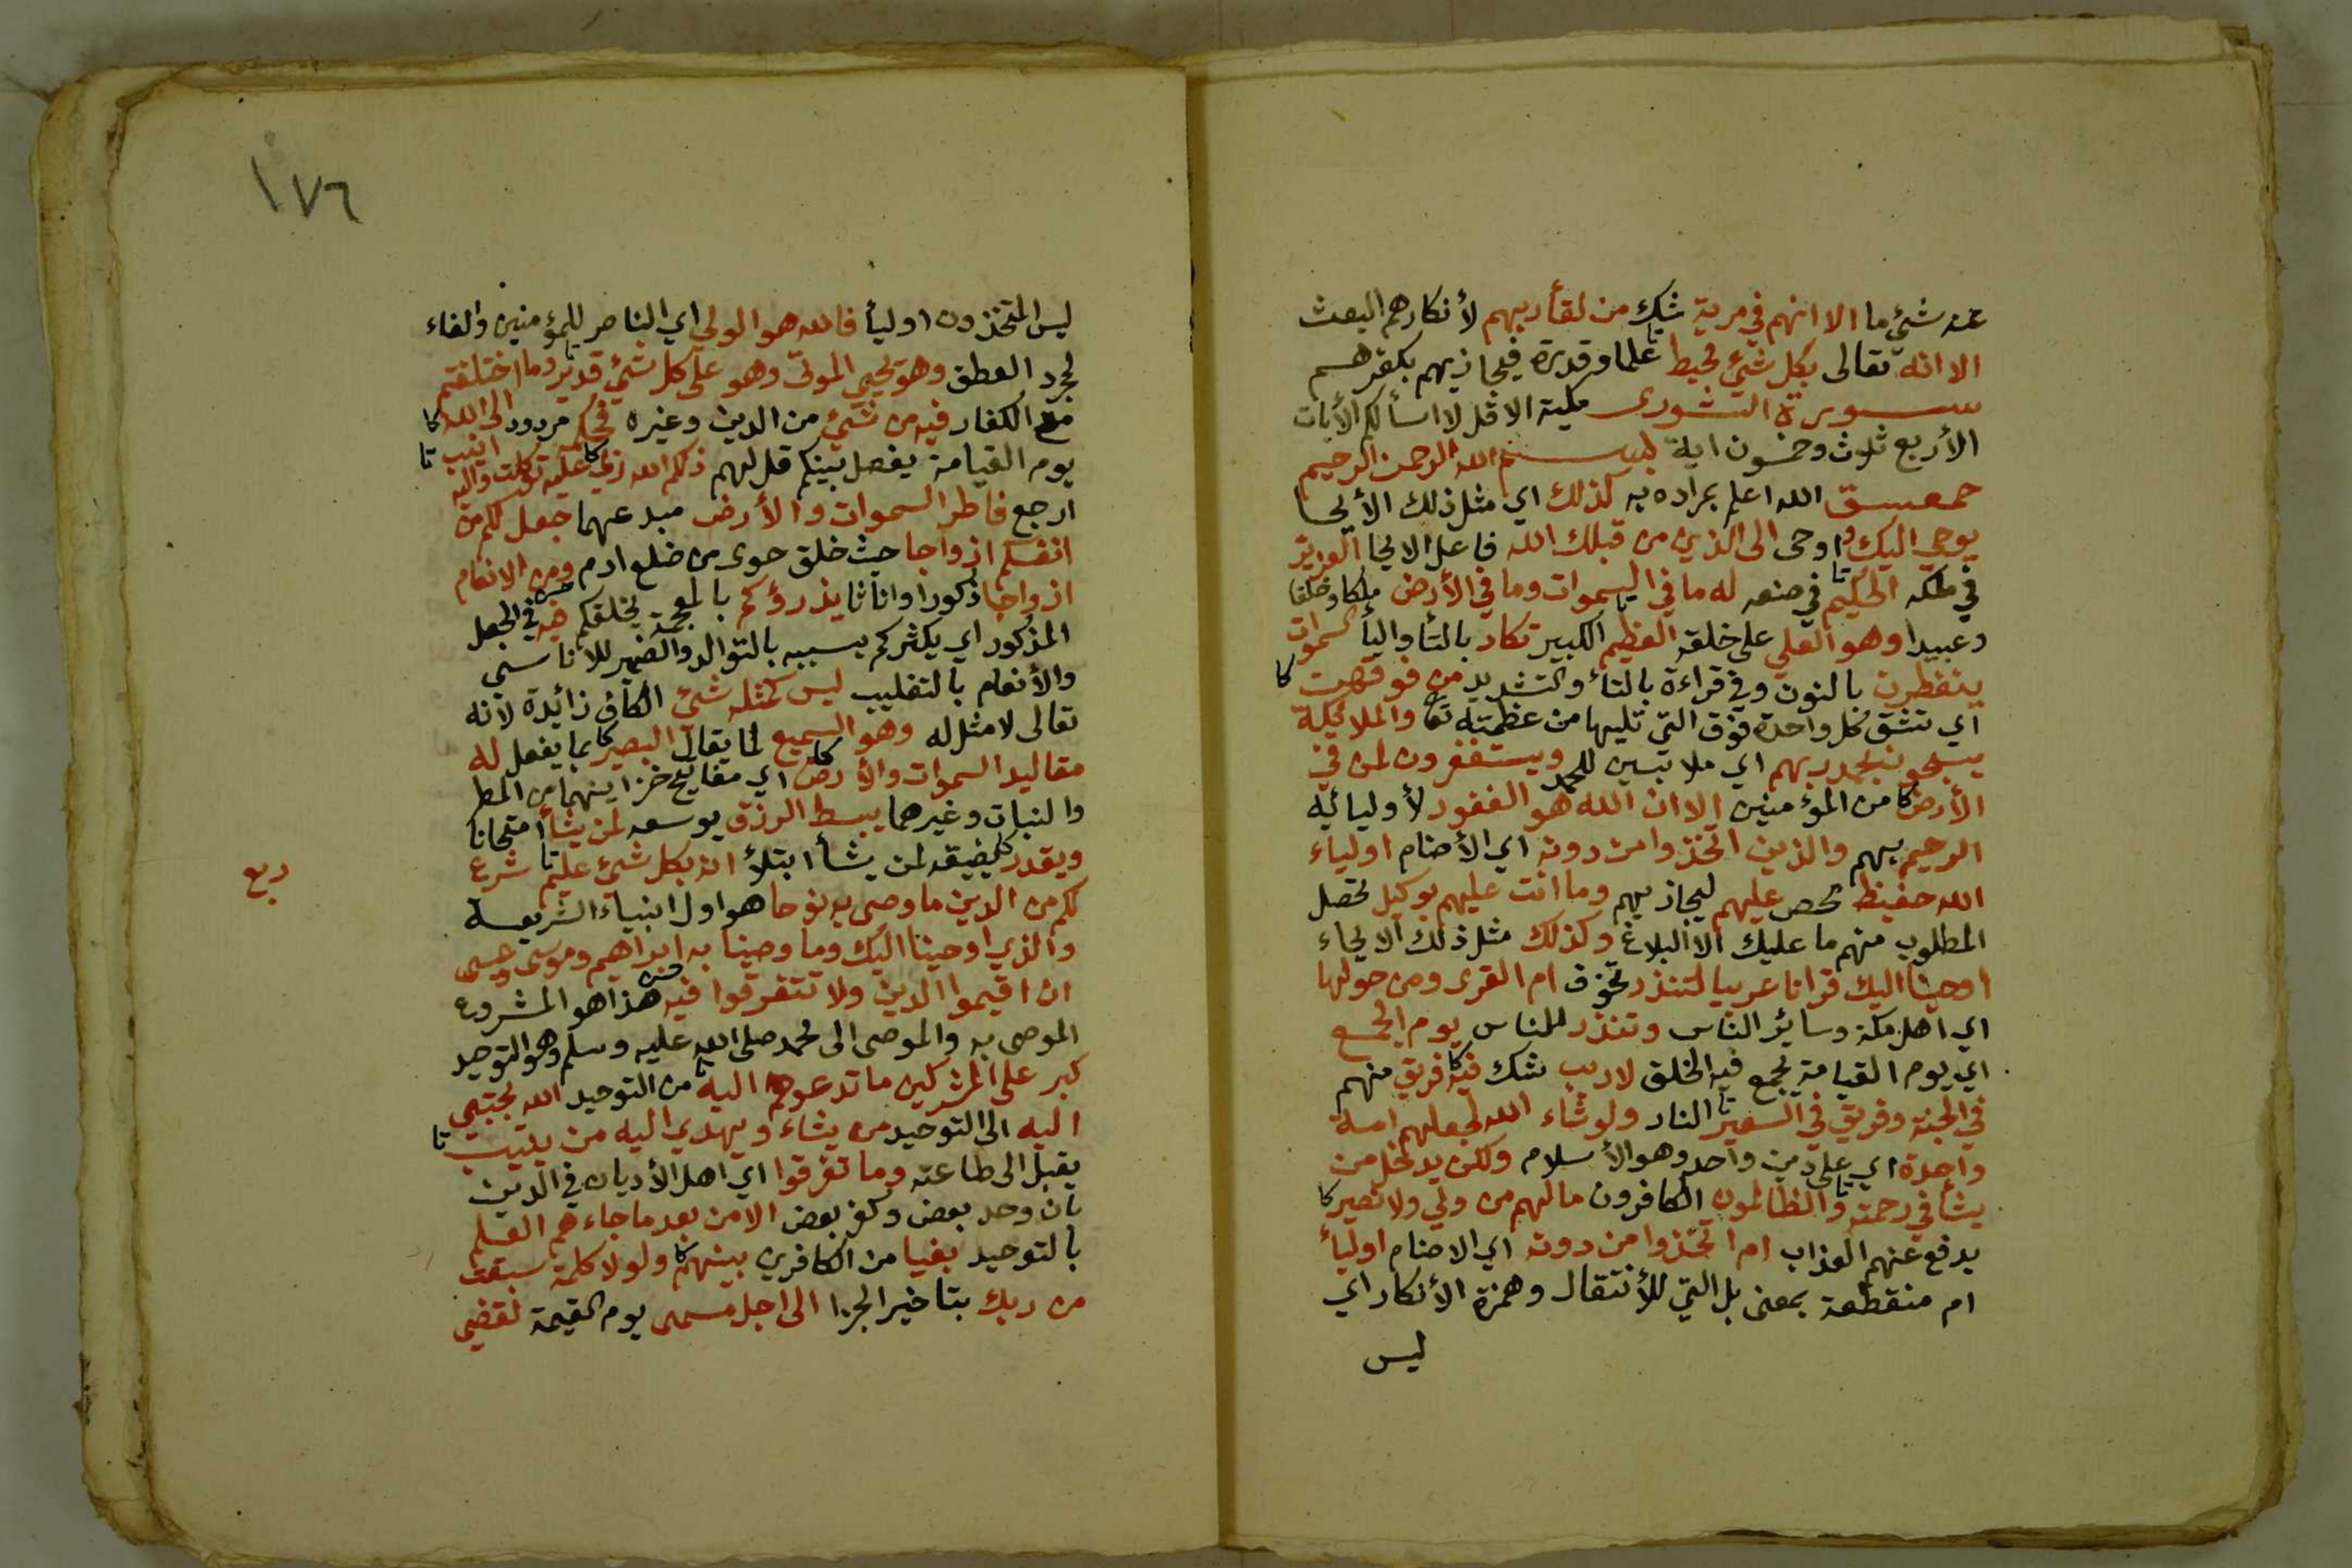 عنه شيء ما الا انهم في مرية شك من لقأ ربهم لأنكارهم البعث
الا انه تعالى بكل شيء محيط تا علما وقدرة فيجازيهم بكفرهم
سورة الشورى مكية الا قل لا اسألكم الأيات
الأربع ثلوث وخمسون اية بسم الله الرحمن الرحيم
حمعسق الله اعلم بمراده به كذلك اي مثل ذلك الأيحا
يوحي اليك و اوحى الى الذين من قبلك الله فاعل الايحا العزيز
في ملكه الحكيم تا في صنعه له ما في السموات وما في الأرض ملكا وخلقا
وعبيدا وهو العلي على خلقه العظيم تا الكبير تكاد بالتأ واليأ السموات
ينفطرن بالنون وفي قراءة بالتاء والتشديد من فوقهن كا
اي تنشق كل واحدة فوق التي تليها من عظمته تعا والملائكة
يسبحون بحمد ربهم اي ملابسين للحمد ويستغفرون لمن في
الأرض كا من المؤمنين الا ان الله هو الغفور لأوليائه
الرحيم بهم والذين اتخذوا من دونه اي الأصنام اولياء
الله حفيظ محص عليهم ليجازيهم وما انت عليهم بوكيل تحصل
المطلوب منهم ما عليك الا البلاغ وكذلك مثل ذلك الايحاء
اوحينا اليك قرانا عربيا لتنذر تخوف ام القرى ومن حولها
اي اهل مكة وسائر الناس وتنذر للناس يوم الجمع
اي يوم القيامة يجمع فيه الخلق لاريب شك فيه كا فريق منهم
في الجنة وفريق في السعير تا النار ولو شاء الله لجعلهم امة
واحدة اي على دين واحد وهو الأسلام ولكن يدخل من
يشأ في رحمته تا والظالمون الكافرون مالهم من ولي ولا نصير كا
يدفع عنهم العذاب ام اتخذوا من دونه اي الاصنام اوليأ
ام منقطعة بمعنى بل التي للأنتقال وهمزة الأنكار اي
ليس
١٧٦
ليس المتخذون اوليأ فالله هو الولي اي الناصر للمؤمنين والفاء
لمجرد العطف وهو يحيي الموتى وهو على كل شيء قدير تا وما اختلفتم
مع الكفار فيه من شيء من الدين وغيره فحكمه مردود الى الله كا
يوم القيامة يفصل بينكم قل لهم ذلكم الله ربي كا عليه توكلت واليه انيب تا
ارجع فاطر السموات والأرض مبدعهما جعل لكم من
انفسكم ازواجا حيث خلق حوى من ضلع ادم ومن الانعام
ازواجا ذكورا واناثا يذرؤكم بالمعجمة يخلقكم فيه حسن في الجعل
المذكور اي يكثركم بسببه بالتوالد والضمير للاناسي
والأنعام بالتغليب ليس كمثله شيء الكاف زائدة لأنه
تعالى لا مثل له وهو السميع لما يقال البصير كا بما يفعل له
مقاليد السموات والأرض كا اي مفاتيح خزاينهما من المطر
والنبات وغيرهما يبسط الرزق يوسعه لمن يشأ امتحانا
ويقدر كا يضيقه لمن يشأ ابتلأ انه بكل شيء عليم تا شرع
ربع
لكم من الدين ما وصى به نوحا هو اول انبياء الشريعة
والذي اوحينا اليك وما وصينا به ابراهيم وموسى وعيسى
ان اقيموا الدين ولا تتفرقوا فيه حسن هذا هو المشروع
الموصى به والموصى الى محمد صلى الله عليه وسلم وهو التوحيد
كبر على المشركين ما تدعوهم اليه تا من التوحيد الله يجتبي
اليه الى التوحيد من يشاء ويهدي اليه من ينيب تا
يقبل الى طاعته وما تفرقوا اي اهل الأديان في الدين
بان وحد بعض وكفر بعض الا من بعد ما جاءهم العلم
بالتوحيد بغيا من الكافرين بينهم كا ولولا كلمة سبقت
من ربك بتاخير الجزا الى اجل مسمى يوم القيمة لقضي